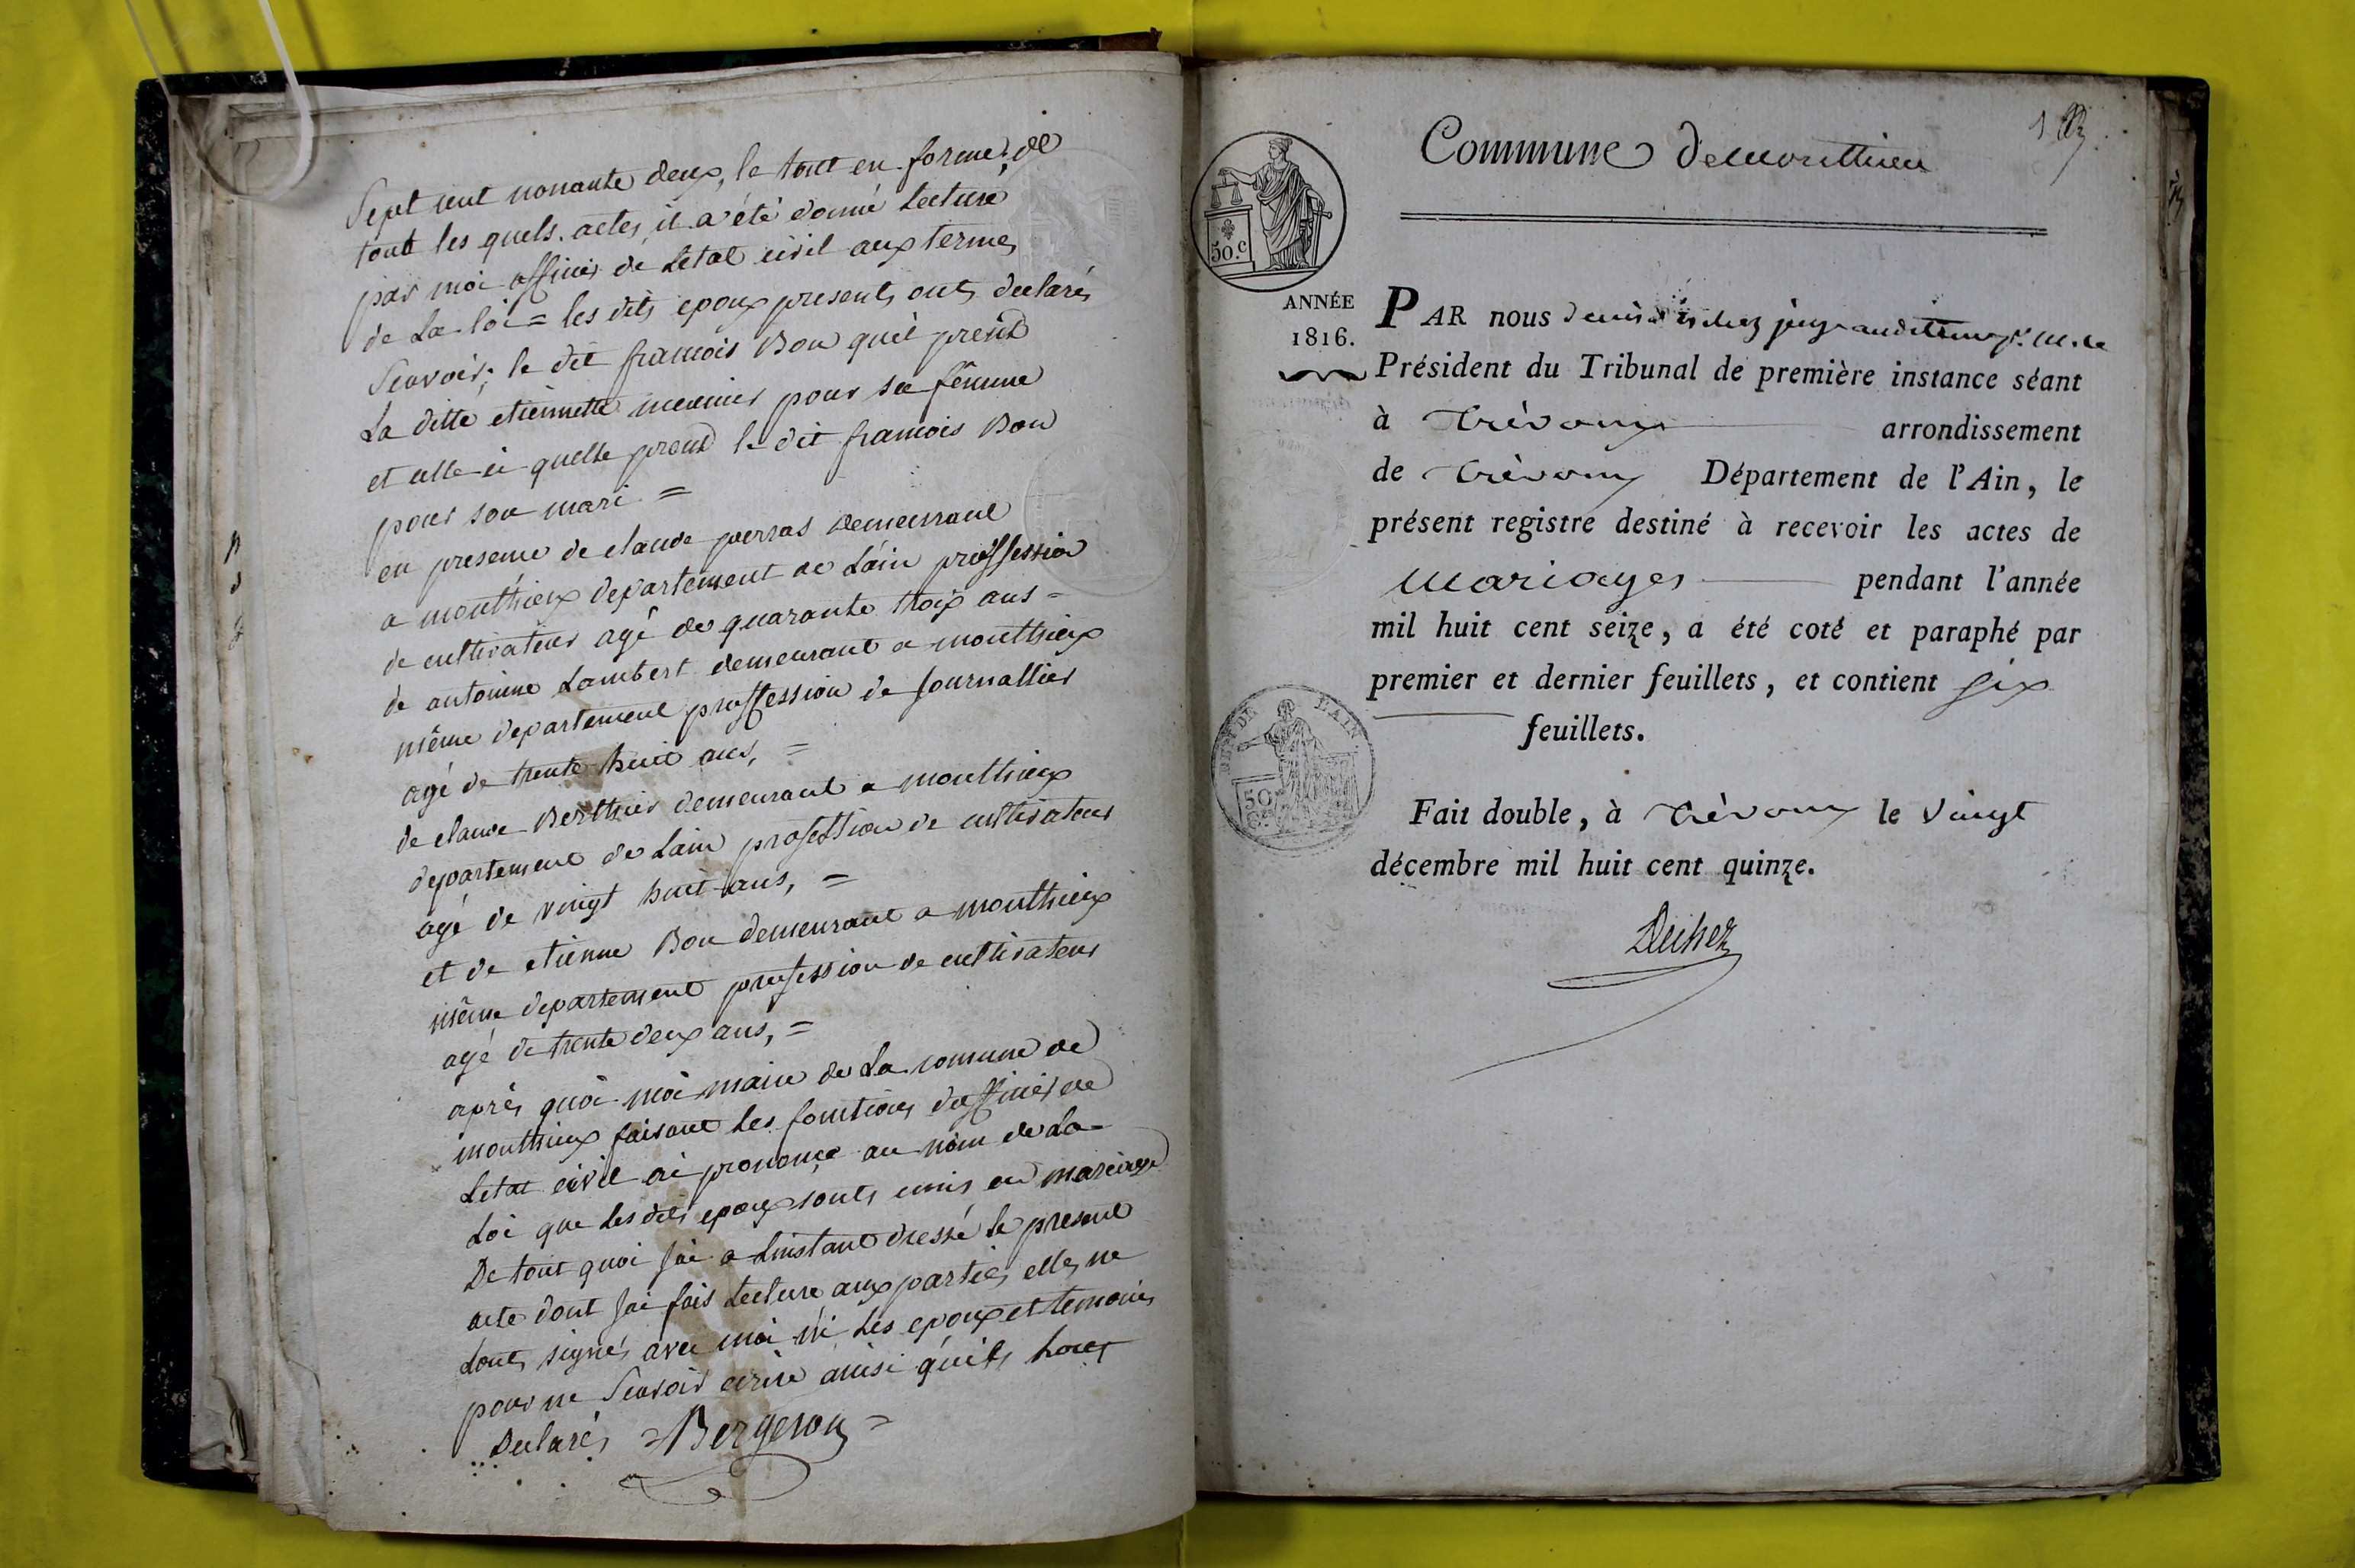 Sept cent nonante deux, le tout en forme, de
tout les quels actes, il a été donné Lecture
par moi officier de Létat civil aux termes
de La loi = les dits epoux presents onts declarés
Scavoir; le dit francois Bon qu'il prend
La ditte etiennette meunier pour sa fémme
et elle à quelle prend le dit francois Bon
pour son mari =
en presence de claude perras demeurant
a monthieux departement de Láin proffession
de cultivateur agé de quarante troix ans =
de antoinne Lambert demeurant a monthieux
même departement proffession de Journallier
agé de trente huit ans, =
de claude Berthier demeurant a monthieux
departement de Lain profession de cultivateur
agé de vingt huit ans, =
et de etienne Bon demeurant a monthieux
même departement profession de cultivateur
agé de trente deux ans, =
après quoi moi maire de La comune de
monthieux faisant Les fonctions dofficier de
Létat civil ai prononcé au nom de La
Loi que Les dits epoux sonts unis en mariage
De tout quoi Jai a Linstant dressé le present
acte dont Jai fais Lecture aux parties, elles ne
Lonts signés avec moi ni Lés epoux et temoins
pour ne Scavoir ecrire ainsi qu'ils honts
Declarés = Bergeron =
Commune de monthieu
1
50.c
ANNÉE
1816.
PAR nous juge auditeur pr. m. le
Président du Tribunal de première instance séant
à Trévoux arrondissement
de Trévoux Département de l'Ain, le
présent registre destiné à recevoir les actes de
Mariages pendant l'année
mil huit cent seize, a été coté et paraphé par
premier et dernier feuillets, et contient six
feuillets.
DE L'AIN.
50
C.
Fait double, à Trévoux le vingt
décembre mil huit cent quinze.